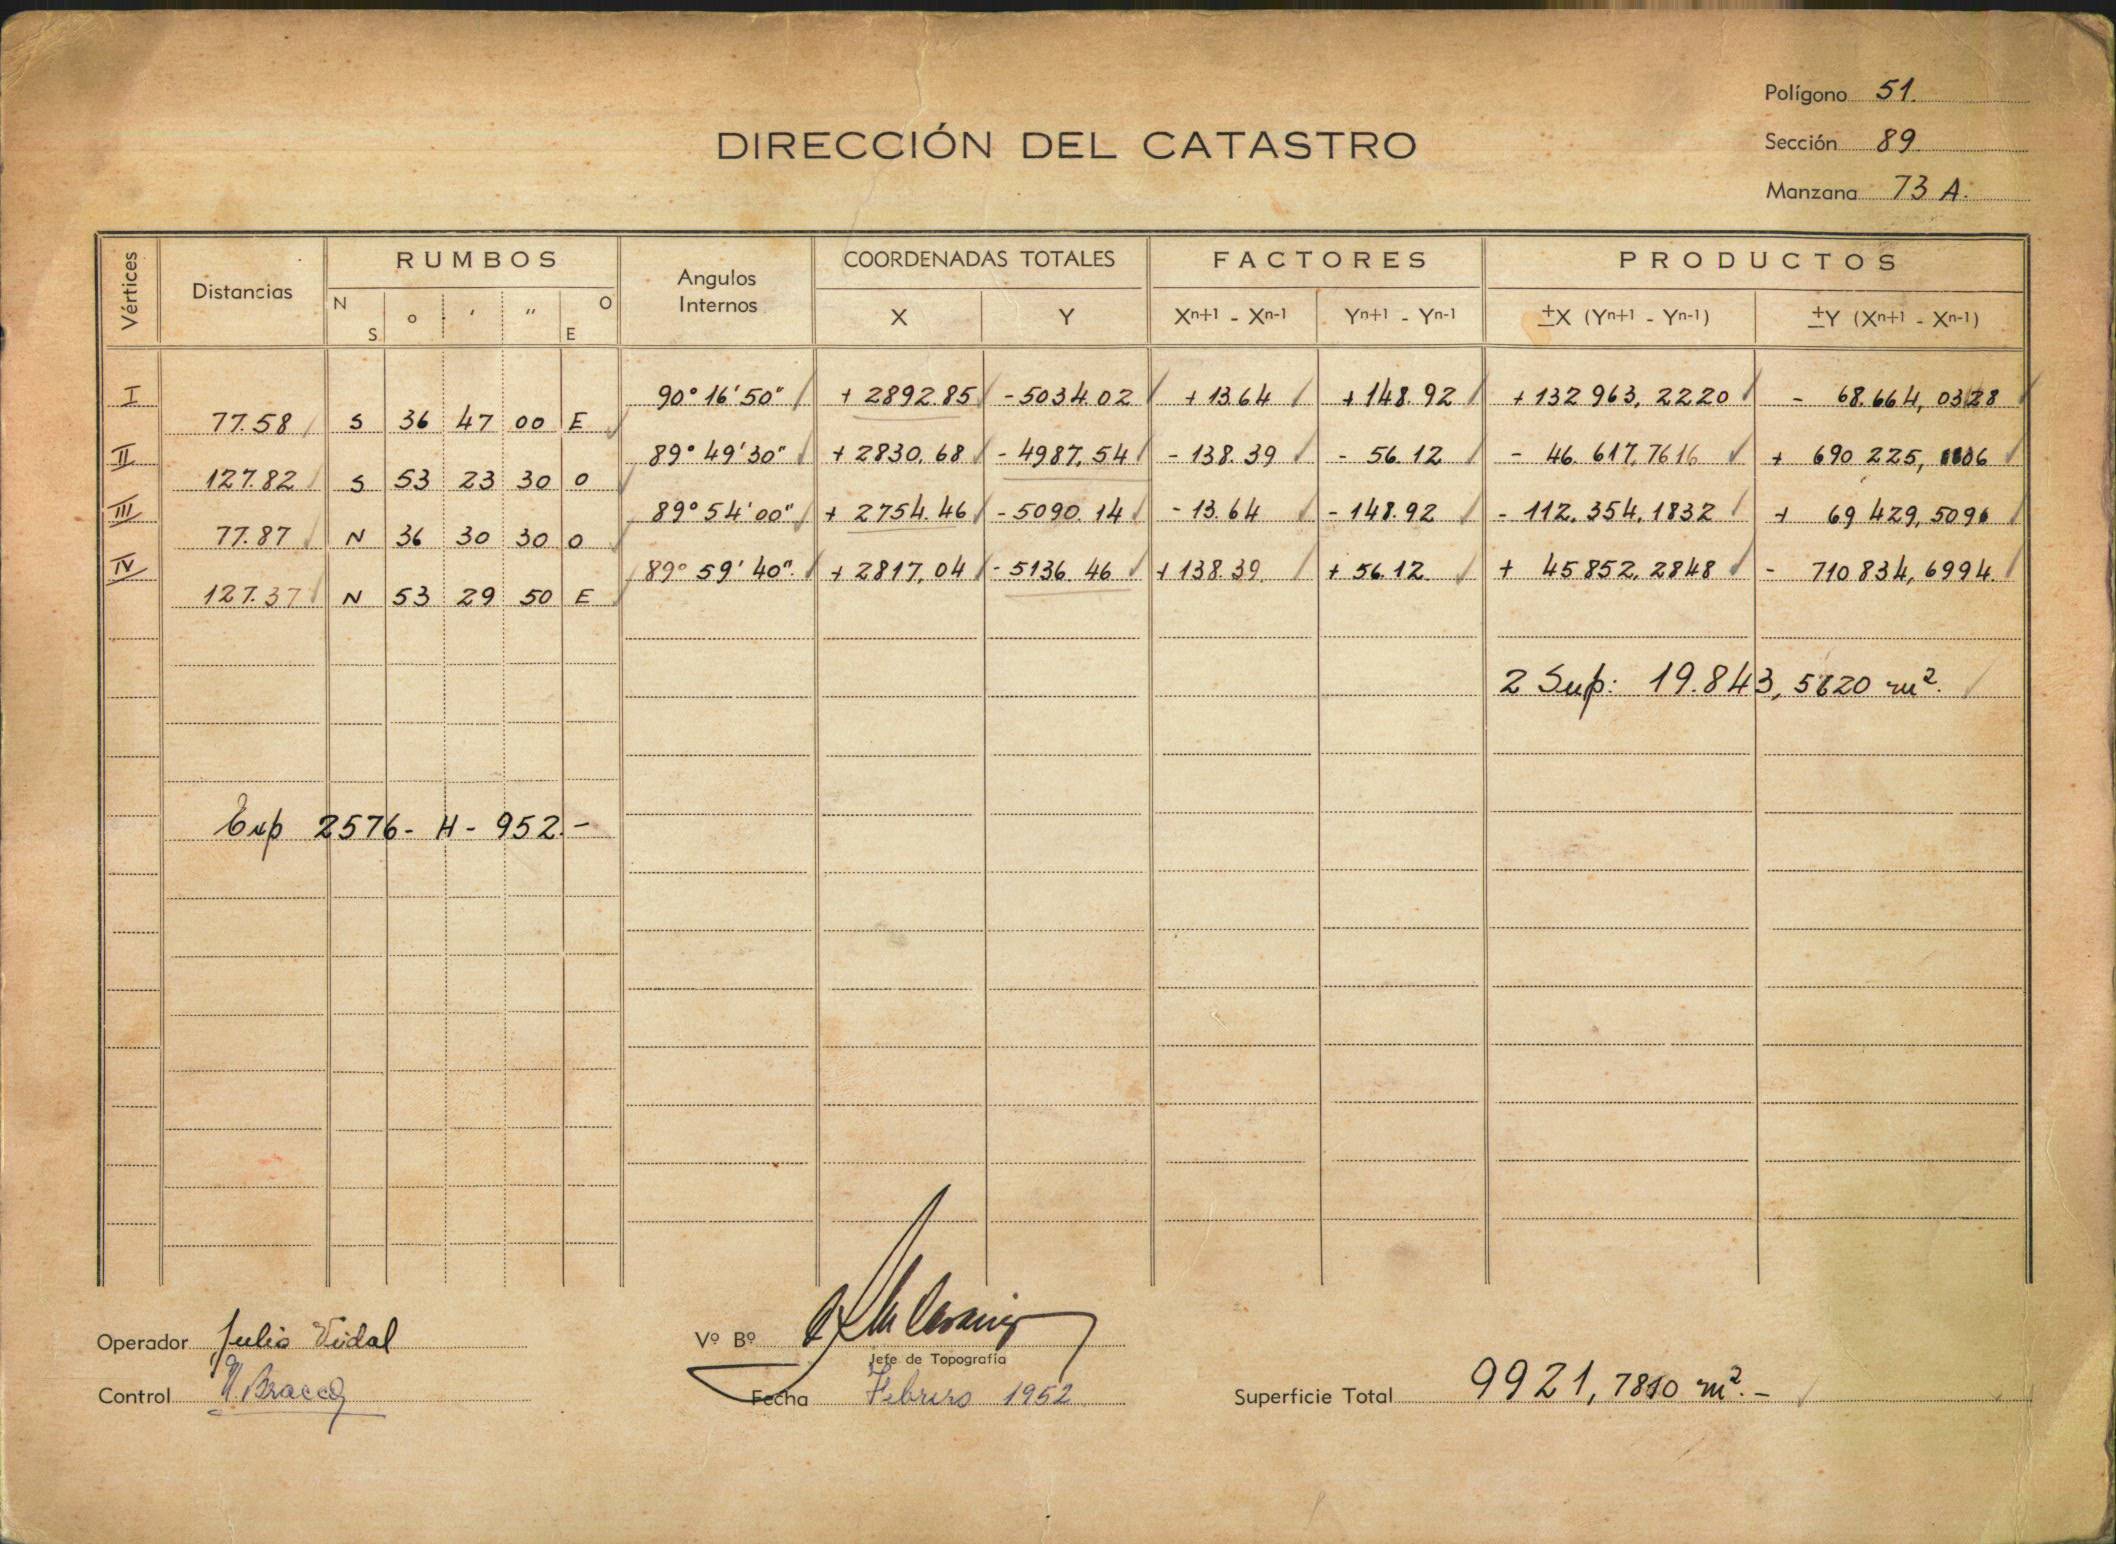 Polígono 51.
DIRECCIÓN DEL CATASTRO
Sección 89.
Manzana 73 A.
Vértices Distancias RUMBOS Angulos Internos COORDENADAS TOTALES FACTORES PRODUCTOS
N S o ' " O E X Y Xn+1 - Xn-1 Yn+1 - Yn-1 ±X (Yn+1 - Yn-1) ±Y (Xn+1 - Xn-1)
I 90° 16' 50" + 2892.85 - 5034.02 + 13.64 + 148.92 + 132 963, 2220 - 68.664, 0328
77.58 S 36 47 00 E
II 89° 49' 30" + 2830.68 - 4987.54 - 138.39 - 56.12 - 46.617,7616 + 690 225,
127.82 S 53 23 30 O
III 89° 54' 00" + 2754.46 - 5090.14 - 13.64 - 148.92 - 112.354,1832 + 69 429,5096
77.87 N 36 30 30 O
IV 89° 59' 40". + 2817,04 - 5136.46 + 138.39. + 56.12. + 45 852,2848 - 710 834,6994.
127.37 N 53 29 50 E
2 Sup: 19.843, 5620 m².
Exp 2576 - H - 952.-
Operador Julio Vidal
Vº Bº
Jefe de Topografía
Control Bracco
Fecha Febrero 1952
Superficie Total 9921,7810 m².-